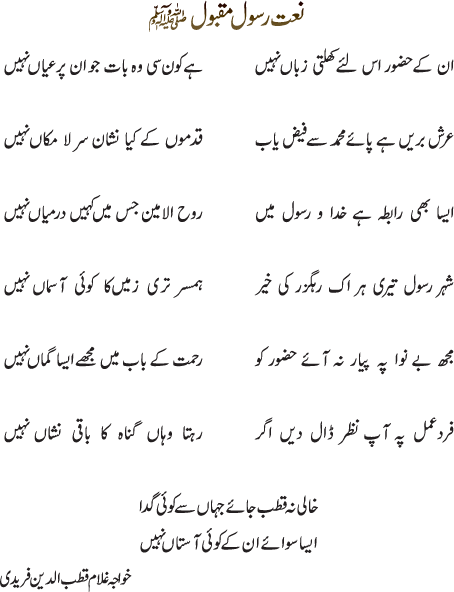 نعت رسول مقبول ﷺ
ان کے حضور اس لئے کھلتی زباں نہیں ہے کون سی وہ بات جو ان پر عیاں نہیں
عرش بریں ہے پائے محمد سے فیض یاب قدموں کے کیا نشان سر لا مکاں نہیں
ایسا بھی رابطہ ہے خدا و رسول میں روح الامین جس میں کہیں درمیاں نہیں
شہر رسول تیری ہر اک رہگزر کی خیر ہمسر تری زمیں کا کوئی آسماں نہیں
مجھ بے نوا پہ پیار نہ آئے حضور کو رحمت کے باب میں مجھے ایسا گماں نہیں
فرد عمل پہ آپ نظر ڈال دیں اگر رہتا وہاں گناہ کا باقی نشاں نہیں
خالی نہ قطب جائے جہاں سے کوئی گدا
ایسا سوائے ان کے کوئی آستاں نہیں
خواجہ غلام قطب الدین فریدی